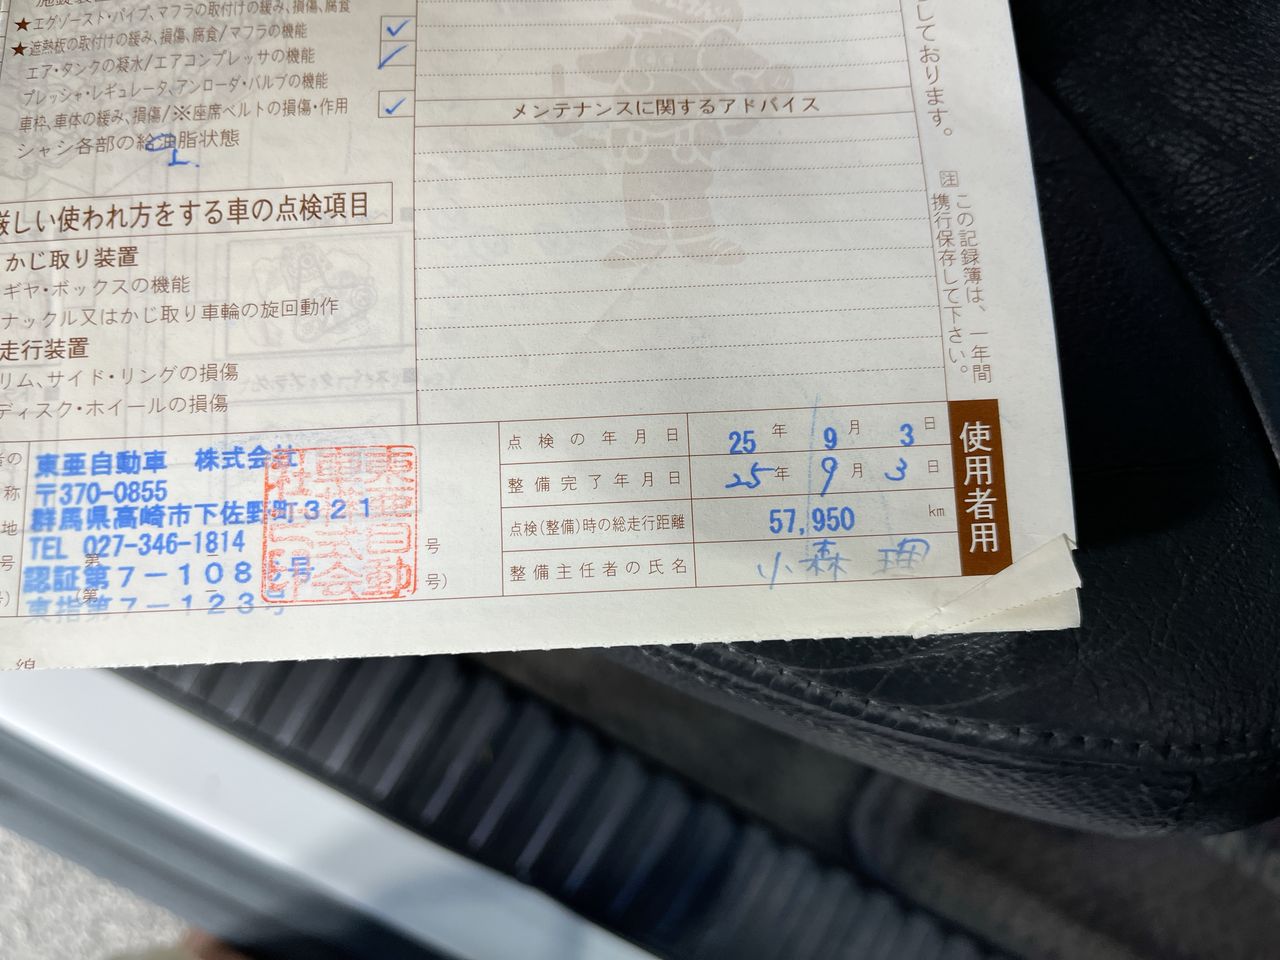 ★エグゾースト・パイプ、マフラの取付けの緩み、損傷、腐食
★遮熱板の取付けの緩み、損傷、腐食/マフラの機能
エア・タンクの凝水/エアコンプレッサの機能
プレッシャ・レギュレータ、アンローダ・バルブの機能
車枠、車体の緩み、損傷/※座席ベルトの損傷・作用
シャシ各部の給油脂状態
厳しい使われ方をする車の点検項目
かじ取り装置
ギヤ・ボックスの機能
ナックル又はかじ取り車輪の旋回動作
走行装置
リム、サイド・リングの損傷
ディスク・ホイールの損傷
メンテナンスに関するアドバイス
しております。
注 この記録簿は、一年間
携行保存して下さい。
東亜自動車 株式会社
〒370-0855
群馬県高崎市下佐野町321
TEL 027-346-1814 号
認証第7-108 号 号)
東指第7-123号
点検の年月日 25年 9月 3日
整備完了年月日 25年 9月 3日
点検(整備)時の総走行距離 57,950 km
整備主任者の氏名 小森
使用者用